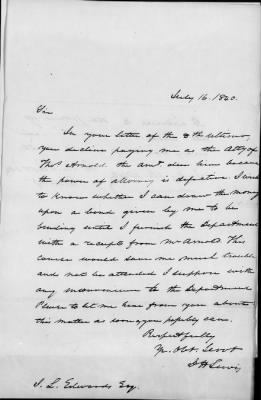 July 16. 1840.
Sir
In your letter of the 8th ultimo,
you decline paying me as the Atty of
Thos Arnold the amt. due him because
the power of attorney is defective. I wish
to know whether I can draw the money
upon a bond given by me to be
binding until I furnish the Department
with a receipt from Mr Arnold. This
course would save me much trouble
and not be attended I suppose with
any inconvenience to the Department.
Please to let me hear from you about
this matter as soon as you possibly can.
Respectfully
Yr. Obt. Servt
Lewis
J. L. Edwards Esq.